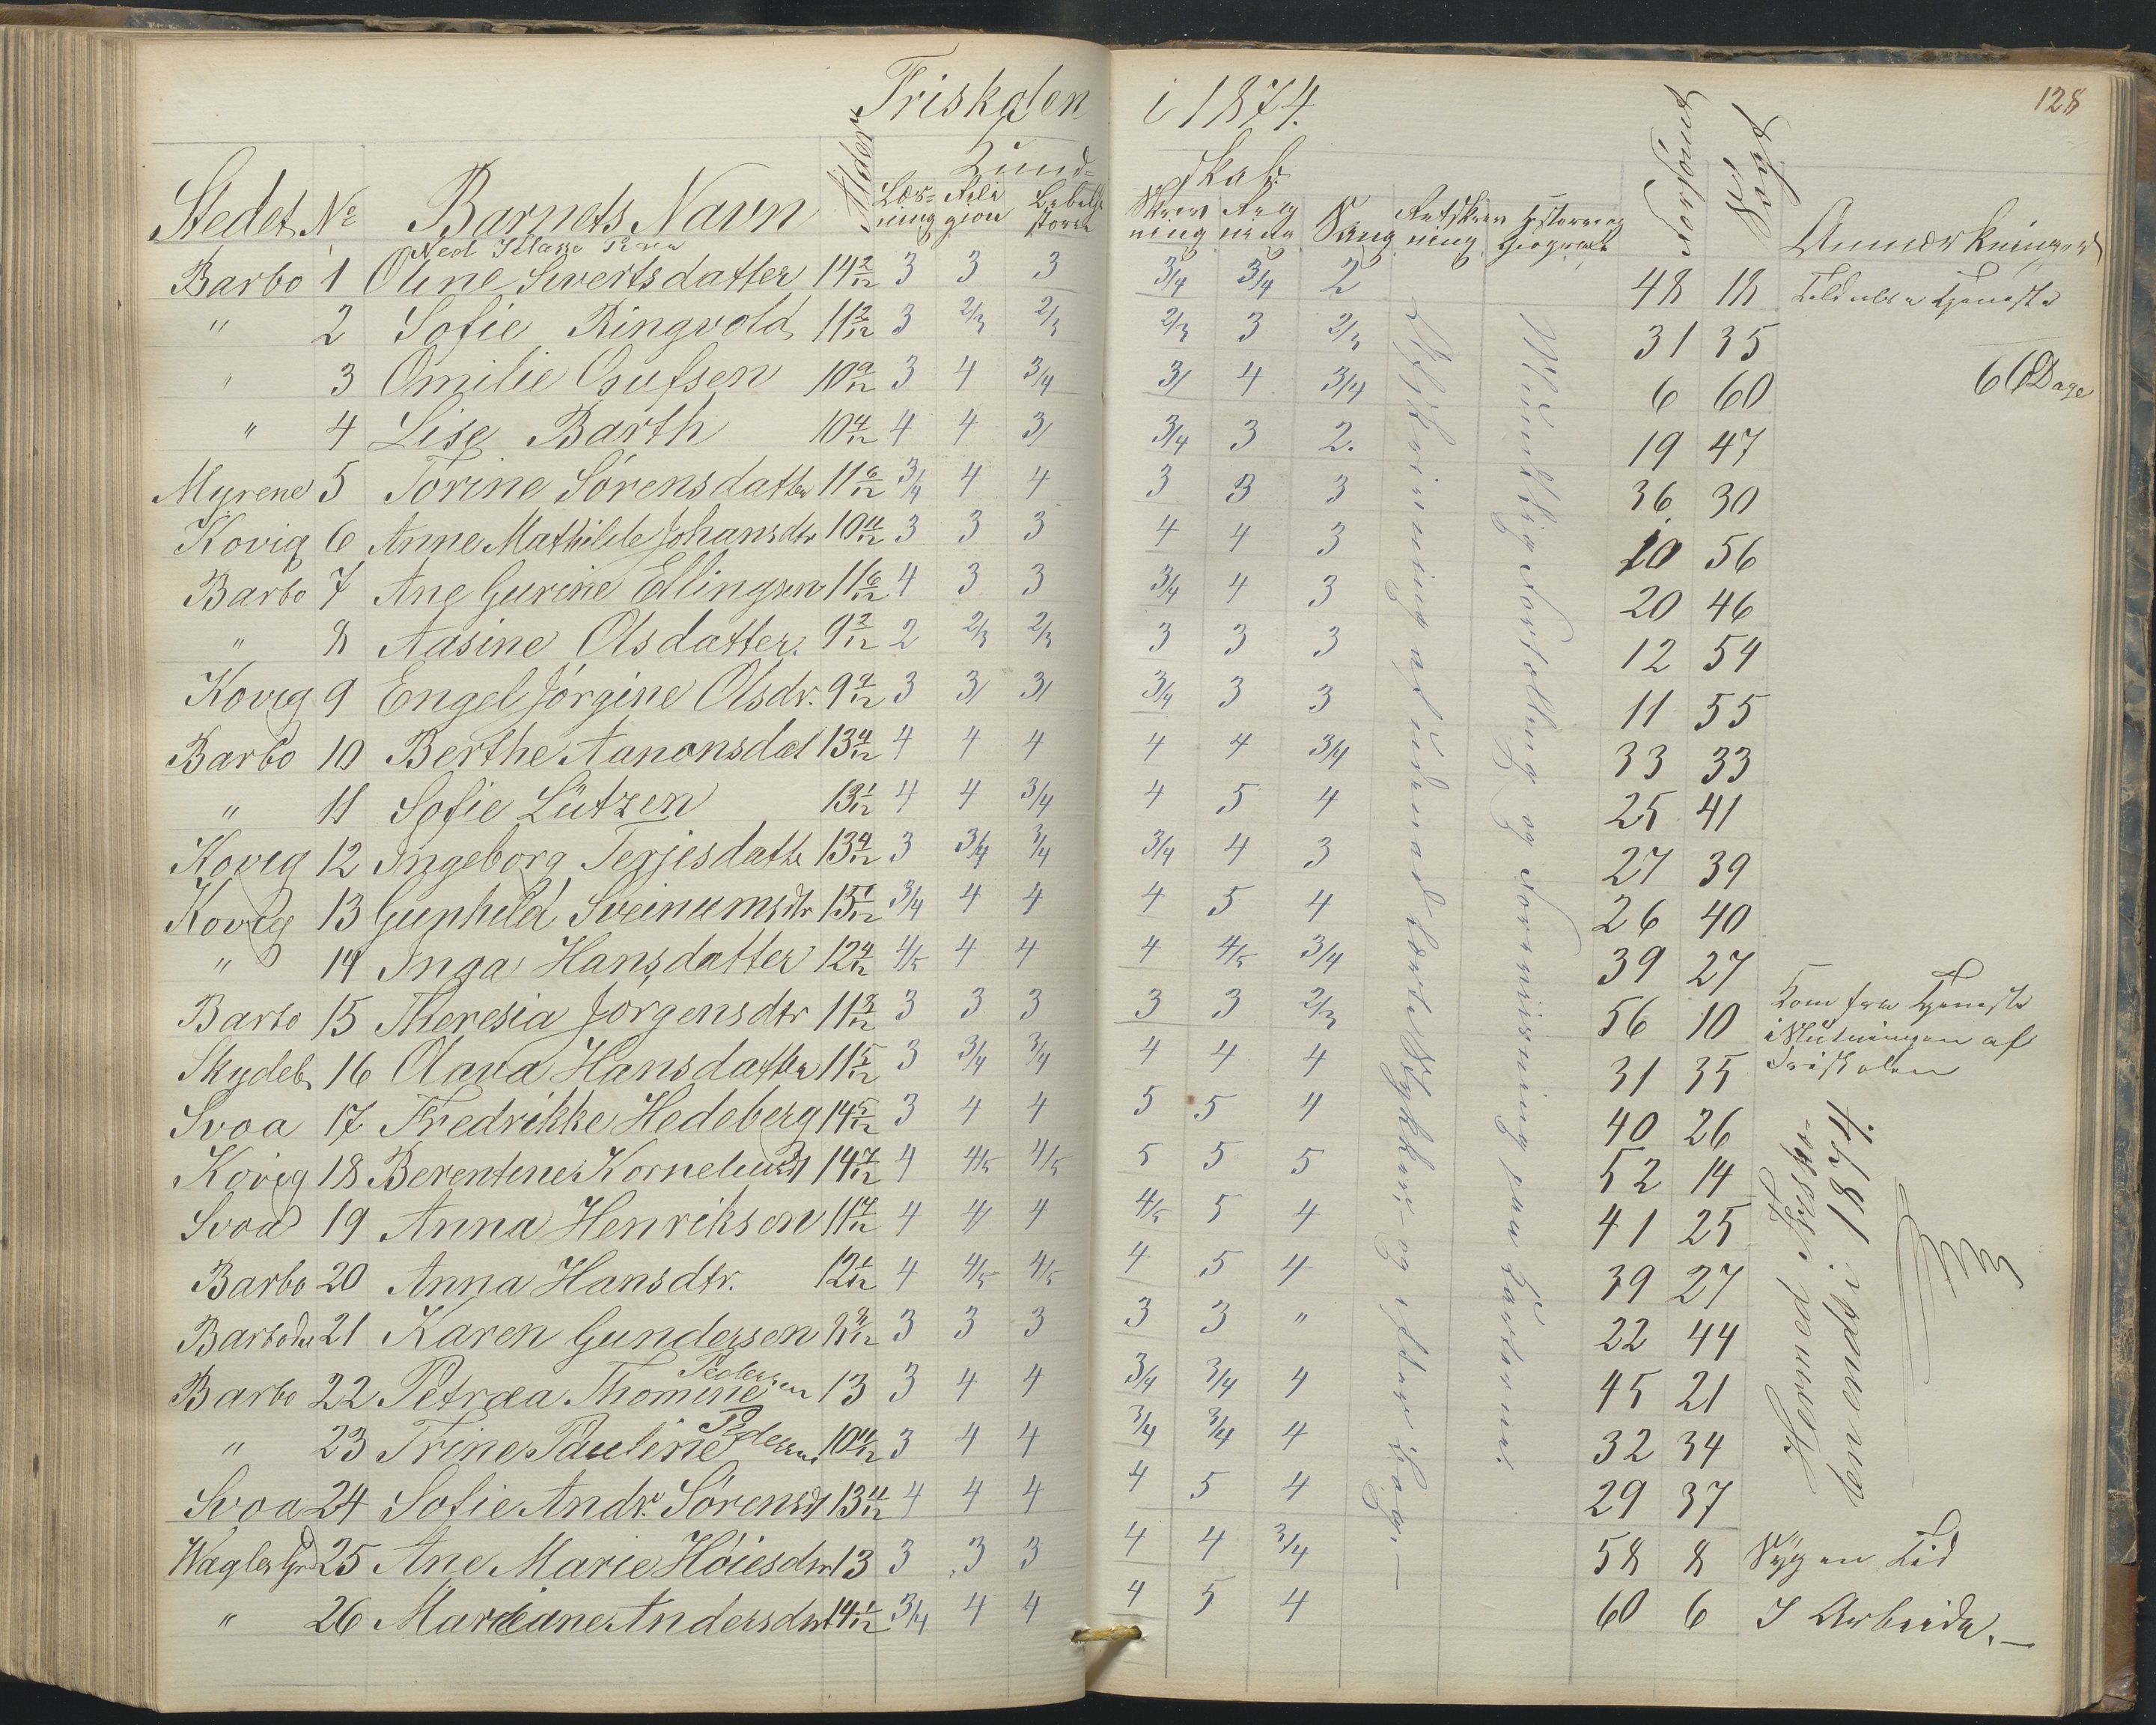 Friskolen i 1874.
128
Kund- skab.
Stedet No Barnets Navn Alder Læs- ning Reli gion Bibelhi storie Skriv ning Reg ning Sang Retskriv ning Historie og Geografi Forsømt Søgt Anmærkninger
Ned Klasse
Barbo 1 Oline Sivertsdatter 14 2/12 3 3 3 3/4 3/4 2 48 18 Tildels i Tjeneste
" 2 Sofie Ringvold 11 2/12 3 2/3 2/3 2/3 3 2/3 31 35
" 3 Emilie Gufsen 10 9/12 3 4 3/4 3/ 4 3/4 6 60 66 Dage
" 4 Lise Barth 10 4/12 4 4 3/ 3/4 3 2. 19 47
Myrene 5 Torine Sørensdatter 11 6/12 3/4 4 4 3 3 3 36 30
Kovig 6 Anne Mathilde Johansdtr 10 11/12 3 3 3 4 4 3 10 56
Barbo 7 Ane Gurine Ellingsen 11 6/12 4 3 3 3/4 4 3 20 46
" 8 Aasine Olsdatter. 9 2/12 2 2/3 2/3 3 3 3 12 54
Kovig 9 Engel Jørgine Olsdr. 9 9/12 3 3/ 3/ 3/4 3 3 11 55
Barbo 10 Berthe Aanonsdat 13 4/12 4 4 4 4 4 3/4 33 33
" 11 Sofie Lützen 13 1/12 4 4 3/4 4 5 4 25 41
Kovig 12 Ingeborg Terjesdatt 13 4/12 3 3/4 3/4 3/4 4 3 27 39
Kovig 13 Gunhild Sveinumsdtr 13 1/12 3/4 4 4 4 5 4 26 40
" 14 Inga Hansdatter 12 4/12 4/5 4 4 4 4/5 3/4 39 27
Barbo 15 Theresia Jørgensdtr 11 8/12 3 3 3 3 3 2/3 56 10 Kom fra Tjeneste
i Slutningen af
Friskolen
Skydeb. 16 Olava Hansdatter 11 5/12 3 3/4 3/4 4 4 4 31 35
Svoa 17 Fredrikke Hedeberg 14 5/12 3 4 4 5 5 4 40 26
Kovig 18 Berentine Korneliusd 14 7/12 4 4/5 4/5 5 5 5 52 14
Svoa 19 Anna Henriksen 11 7/12 4 4 4 4/5 5 4 41 25
Barbo 20 Anna Hansdtr. 12 1/12 4 4/5 4/5 4 5 4 39 27
Barbo 21 Karen Gundersen 3 3 3 3 3 " 22 44
Barbo 22 Petræa Thomine Pedersen 13 3 4 4 3/4 3/4 4 45 21
" 23 Trine Pauline Pedersen 10 11/12 3 4 4 3/4 3/4 4 32 34
Svoa 24 Sofie Andr. Sørensd 13 11/12 4 4 4 4 5 4 29 37
25 Ane Marie Høiesdtr 13 3 3 3 4 4 3/4 58 8 Syg en Tid
" 26 Mariane Andersdtr 14 1/12 3/4 4 4 4 5 4 60 6 I Arbeide.
Afskrivning af udenad lærte Stykker, og efter Bog.
Mundtlig Fortælling og Forevisning paa Kartene.
Hermed Frisko-
len endt i 1874.